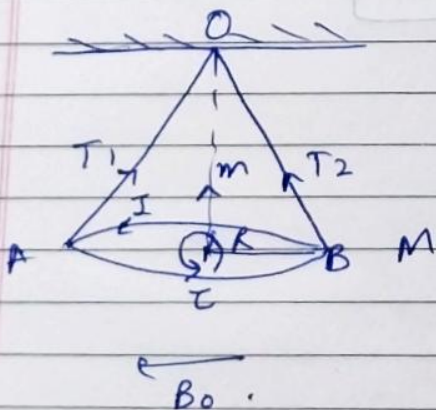 O
T1 m T2
I
A R B M
τ
B0 .